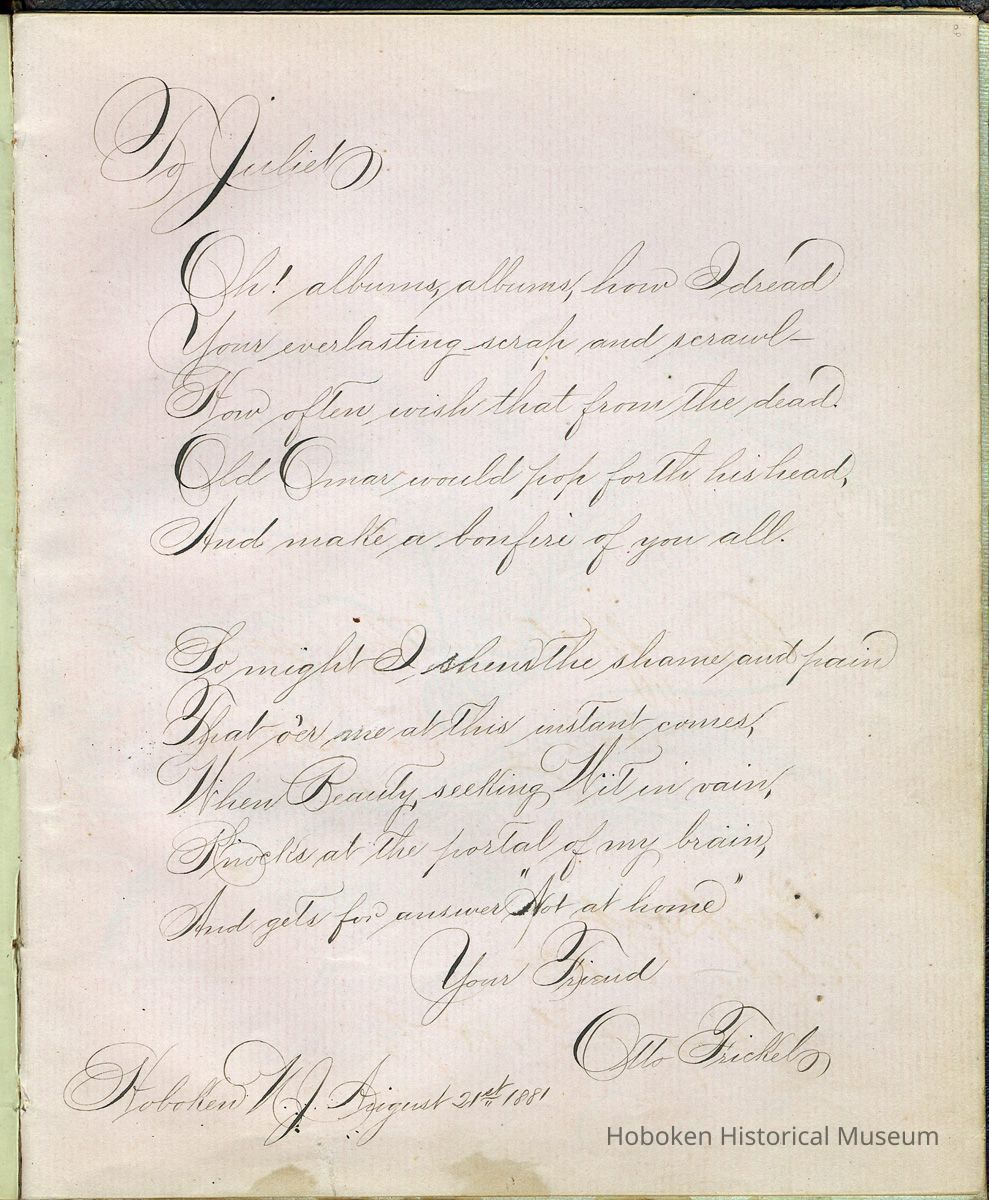 To Juliet
Oh! albums, albums, how I dread
Your everlasting scrap and scrawl—
How often wish that from the dead.
Old Omar would pop forth his head,
And make a bonfire of you all.
So might I shun the shame and pain
That o'er me at this instant comes,
When Beauty, seeking Wit in vain,
Knocks at the portal of my brain,
And gets for answer "Not at home"
Your Friend
Otto Frickel
Hoboken N.J. August 21st 1881
Hoboken Historical Museum